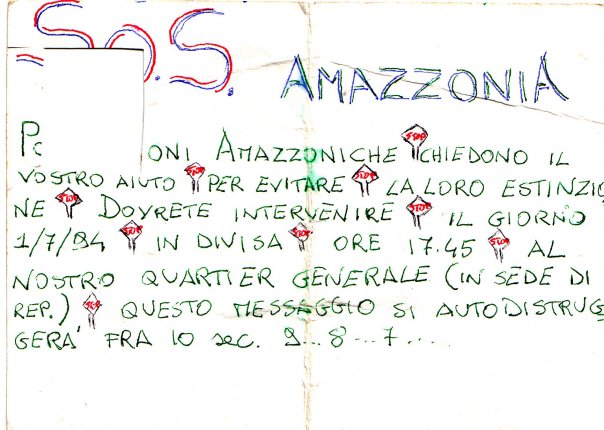 S.O.S. AMAZZONIA
ONI AMAZZONICHE STOP CHIEDONO IL
VOSTRO AIUTO STOP PER EVITARE STOP LA LORO ESTINZIO
NE STOP DOVRETE INTERVENIRE STOP IL GIORNO
1/7/94 STOP IN DIVISA STOP ORE 17.45 STOP AL
NOSTRO QUARTIER GENERALE (IN SEDE DI
REP.) STOP QUESTO MESSAGGIO SI AUTODISTRUG
GERÀ FRA 10 sec. 9...8...7.....